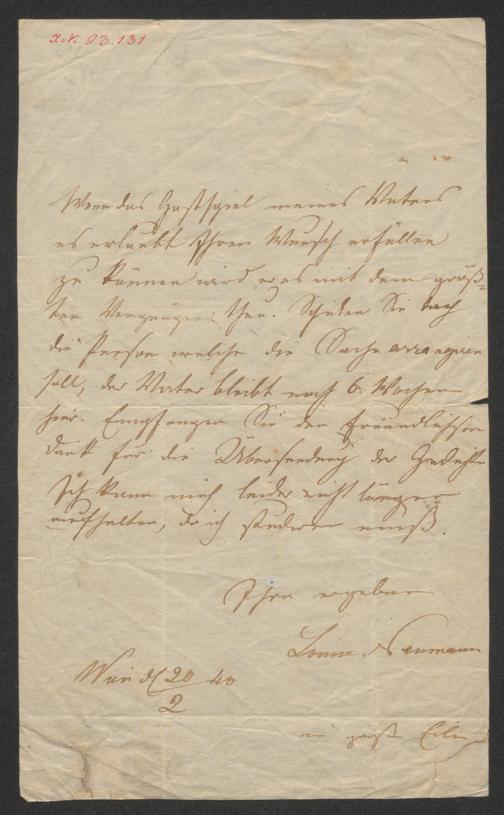 I.N. 93.131
Wenn das Gastspiel meines Vaters
es erlaubt Ihren Wunsch erfüllen
zu können wird er es mit dem größ=
ten Vergnügen thun. Schicken Sie
die Person welche die Sache arrangiren
soll, der Vater bleibt noch 6 Wochen
hier. Empfangen Sie den freundlichsten
Dank für die Übersendung der Gedichte
Ich kann mich leider nicht länger
aufhalten, da ich studieren muß.
Ihre ergebene
Louise Neumann
Wien d 20/2 40
in größter Eile